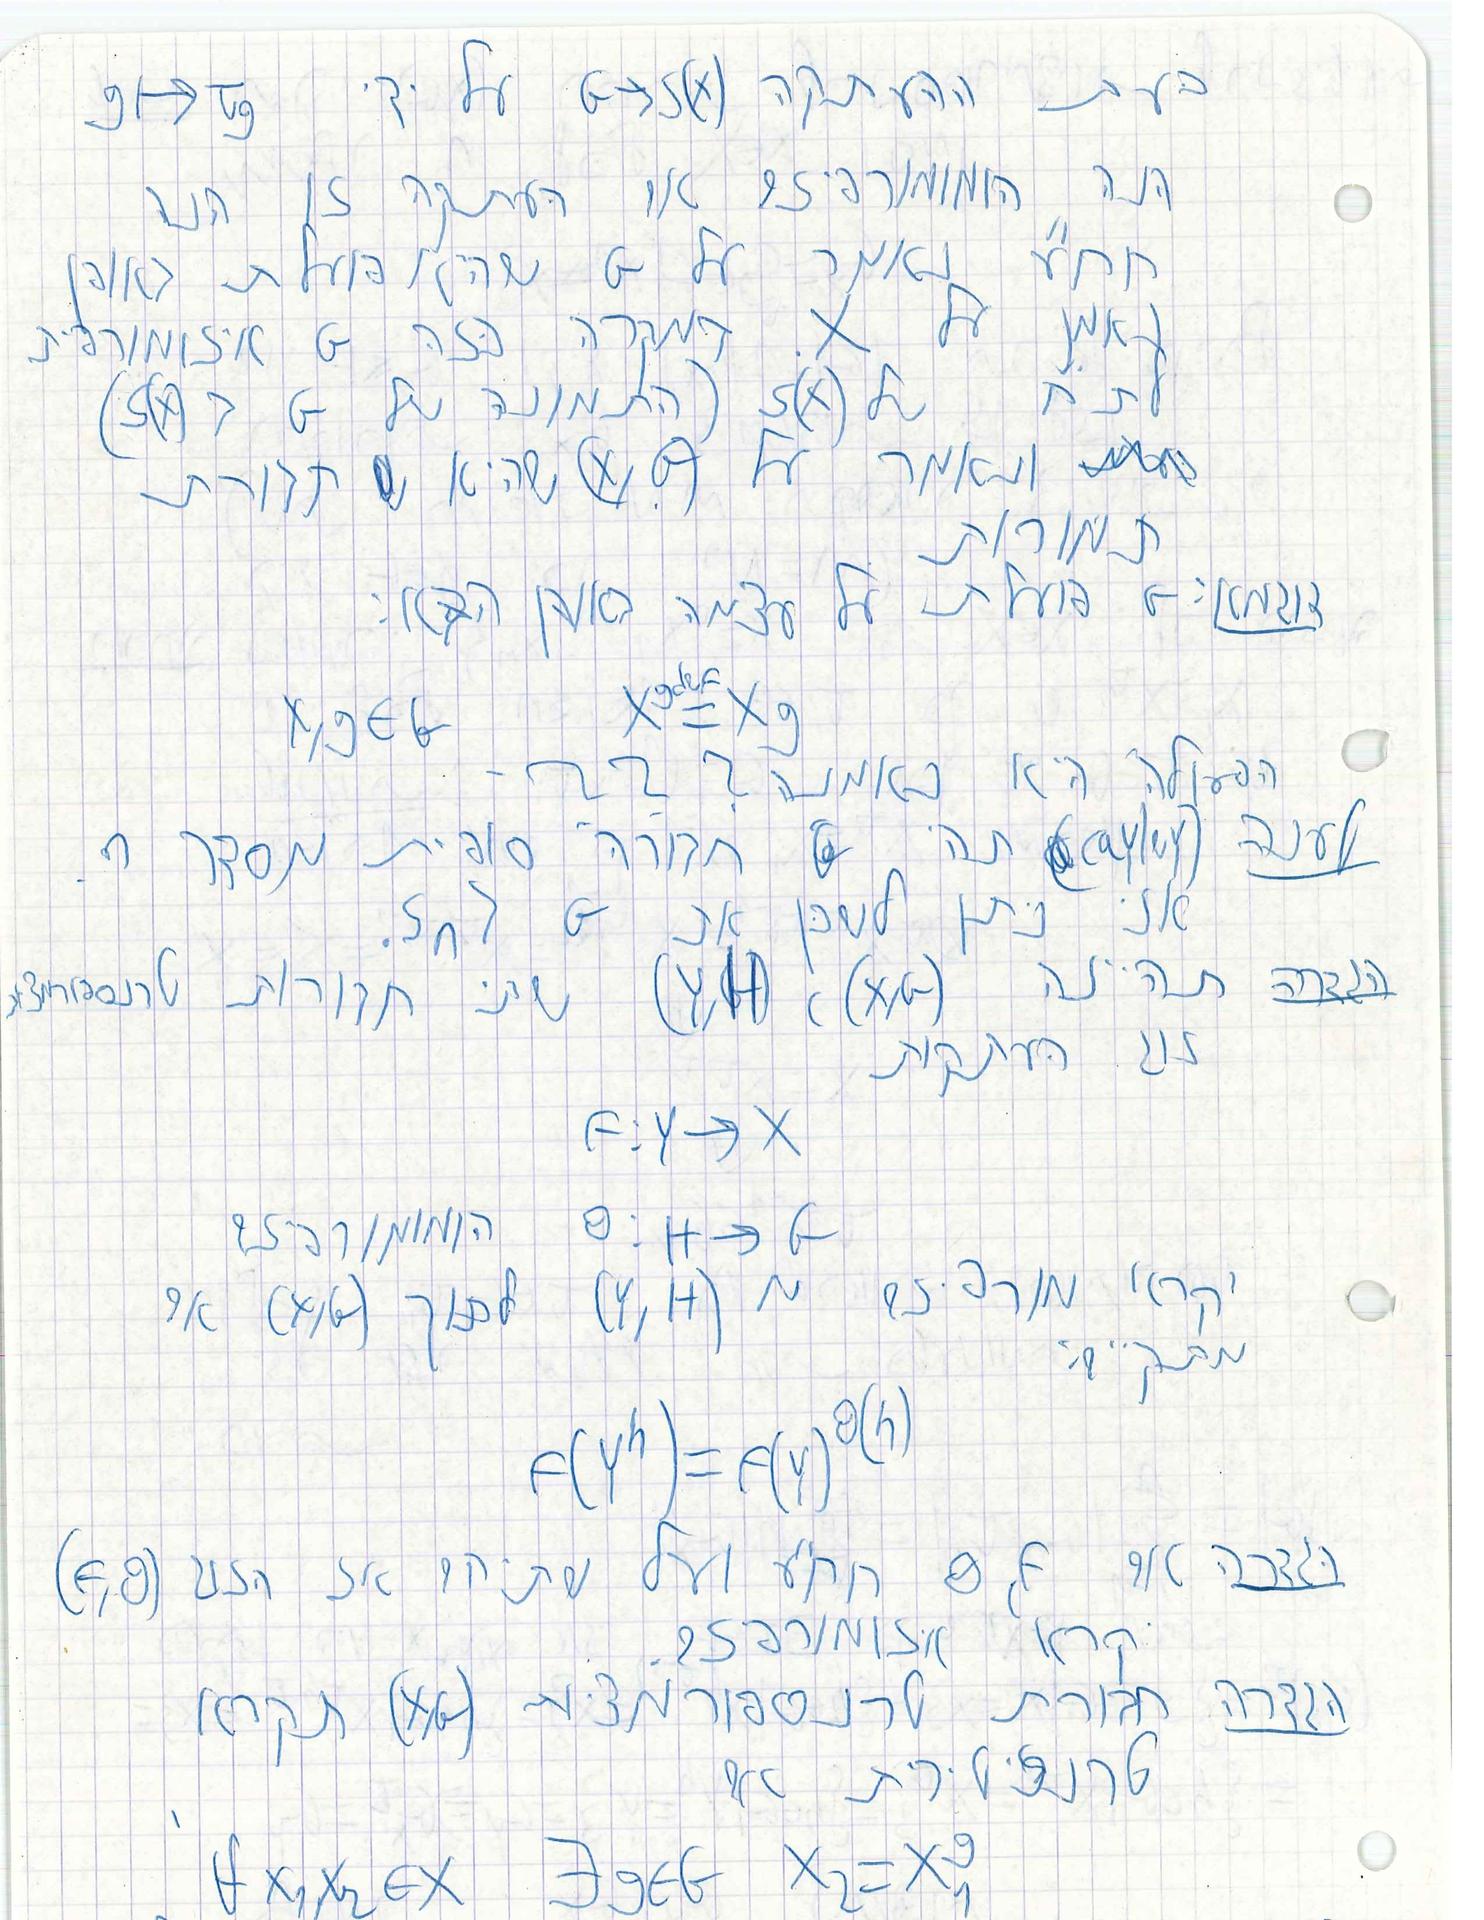 כעת ההעתקה G→S(X) על ידי g↦πg
הנה הומומורפיזם אם העתקה זו הנה
חח"ע נאמר על G שהיא פועלת באופן
נאמן על X. במקרה כזה G איזומורפית
לת"ח של S(X) (התמונה של G ב S(X))
ונאמר על (X,G) שהיא חבורת
תמורות
דוגמא: G פועלת על עצמה באופן הבא:
x,g∈G x^g = xg
הפעולה היא נאמנה
טענה (Cayley) תהי G חבורה סופית מסדר n.
אזי ניתן לשכן את G ב Sn.
הגדרה תהיינה (X,G), (Y,H) שתי חבורות טרנספורמציות
זוג העתקות
F:Y→X
θ:H→G הומומורפיזם
יקראו מורפיזם מ (Y,H) לתוך (X,G) אם
מתקיים:
F(y^h)=F(y)^θ(h)
הגדרה אם F,θ חח"ע ועל שתיהן אז הזוג (F,θ)
יקרא איזומורפיזם.
הגדרה חבורת טרנספורמציות (X,G) תקרא
טרנזיטיבית אם
∀x₁,x₂∈X ∃g∈G x₂=x₁^g